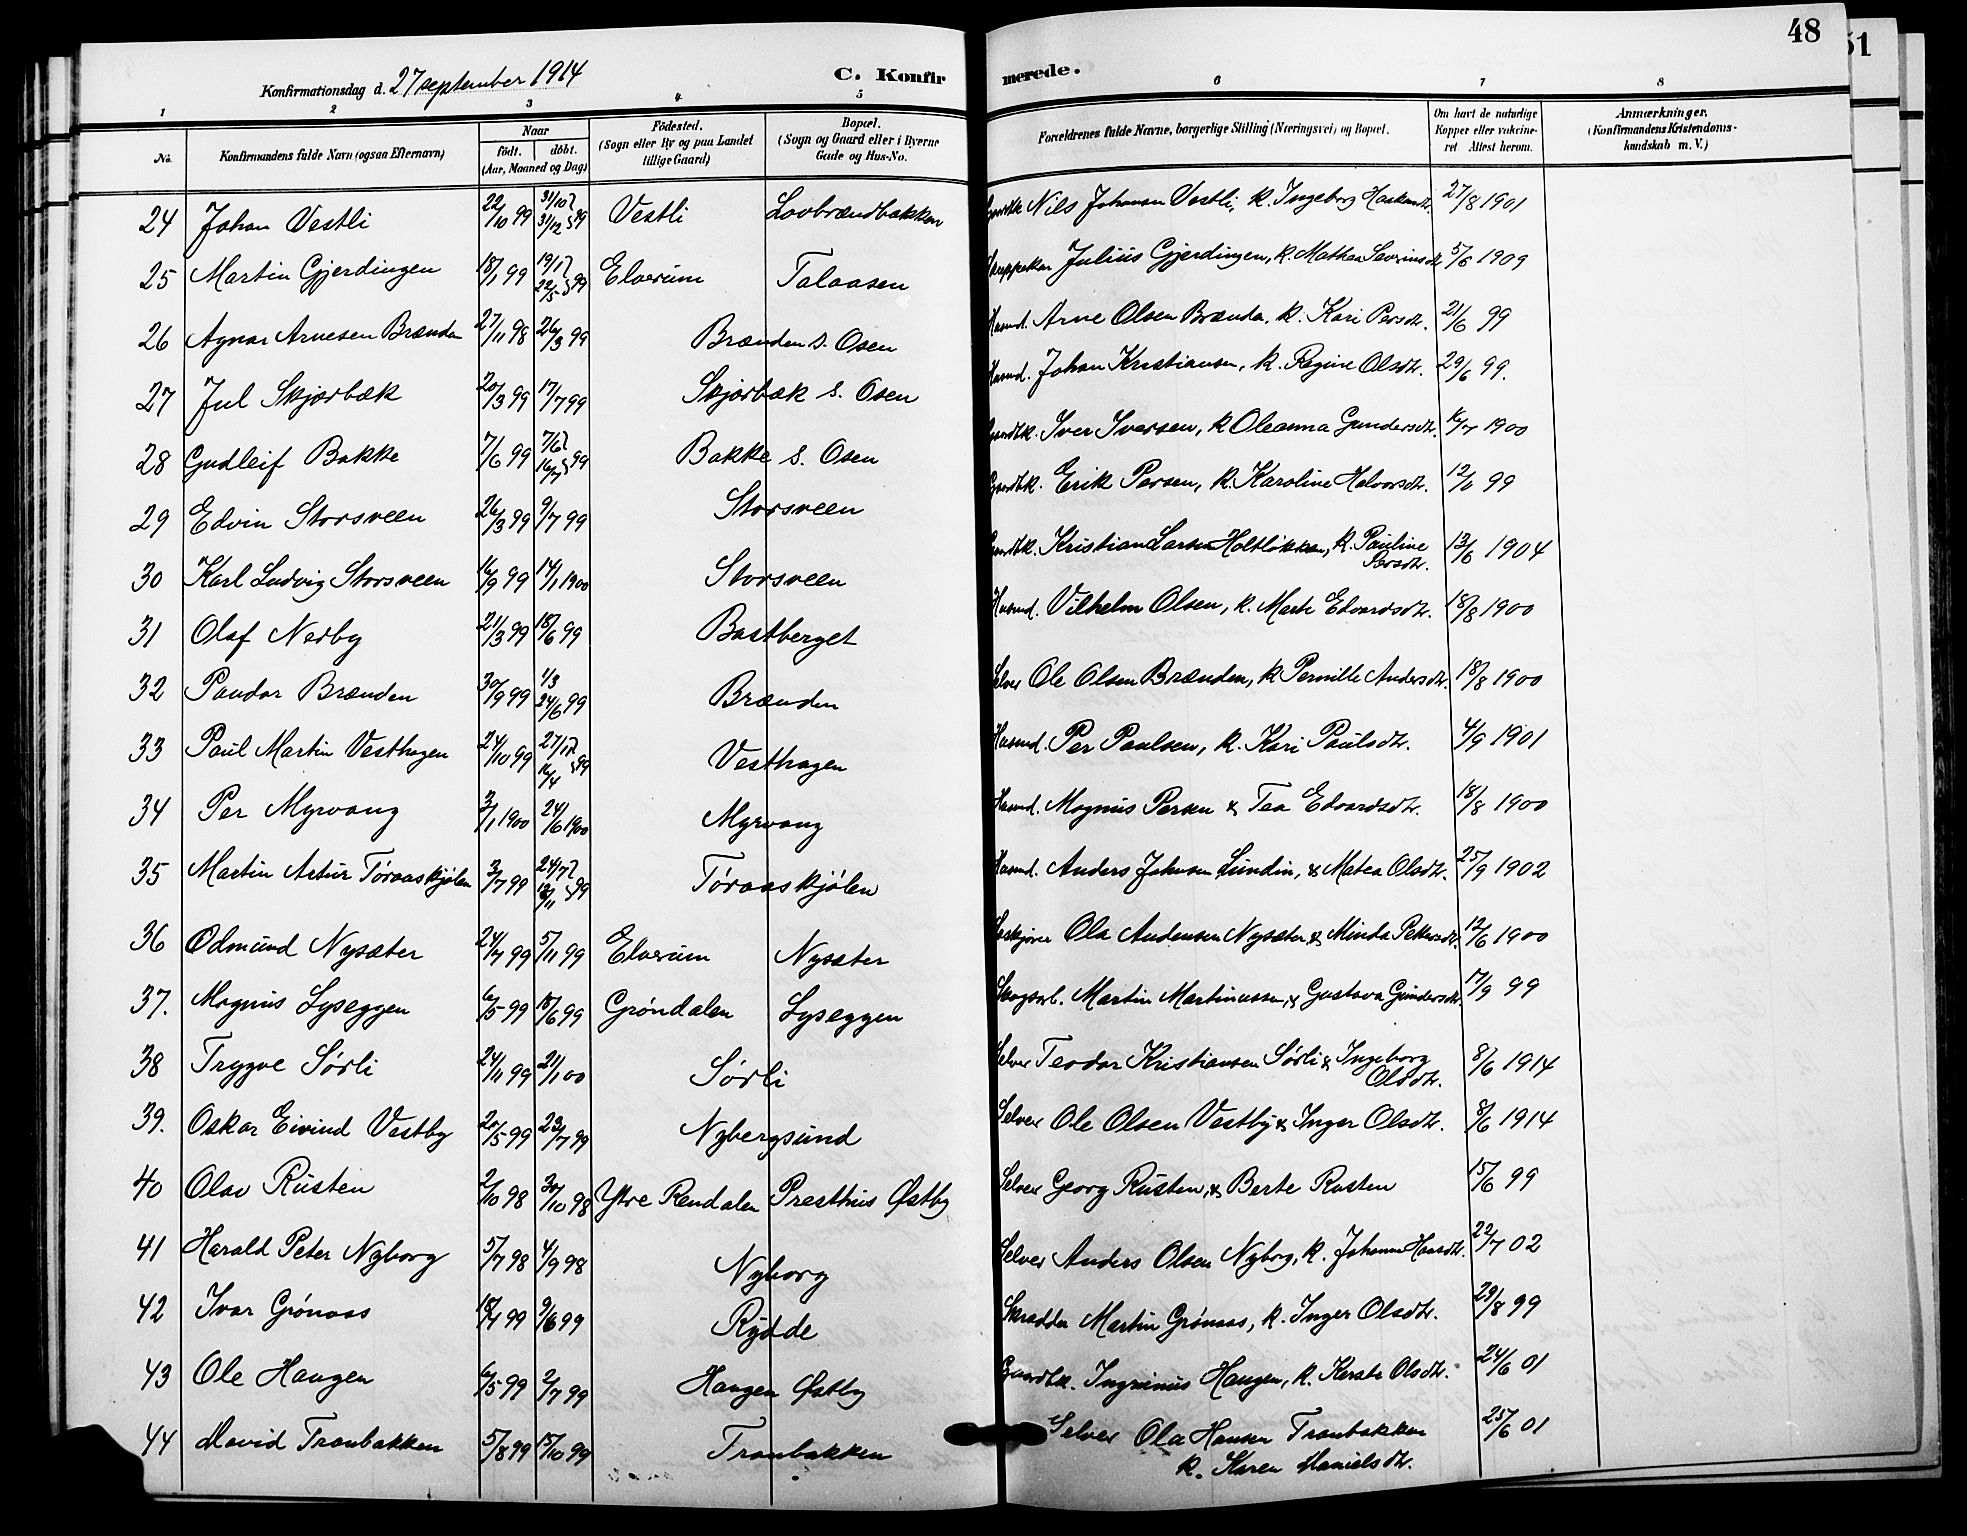 48
51
Konfirmationsdag d. 27 september 1914
C. Konfirmerede.
1 2 3 4 5 6 7 8
No.
Konfirmandens fulde Navn (ogsaa Efternavn)
Naar
födt. döbt.
(Aar, Maaned og Dag)
Födested.
(Sogn eller By og paa Landet
tillige Gaard)
Bopæl.
(Sogn og Gaard eller i Byerne
Gade og Hus-No.
Forældrenes fulde Navne, borgerlige Stilling (Næringsvei) og Bopæl.
Om havt de naturlige
Kopper eller vakcineret
Attest herom.
Anmærkninger.
(Konfirmandens Kristendomskundskab
m. V.)
24 Johan Vestli 22/10 99 31/10 31/12 99 Vestli Lovbrændbakken Gaardbk Nils Johansen Vestli, k. Ingeborg 27/8 1901
25 Martin Gjerdingen 18/1 99 19/1 22/5 99 Elverum Talaasen Julius Gjerdingen, k. Mathea Severinsdtr. 5/6 1909
26 Agnar Arnesen Brænden 27/11 98 26/3 99 Brænden s. Osen Husmd. Arne Olsen Brænden, k. Kari Persdtr. 21/6 99
27 Jul Skjærbæk 20/3 99 17/7 99 Skjærbæk s. Osen Husmd. Johan Kristiansen, k. Regine Olsdtr. 29/6 99.
28 Gudleif Bakke 7/6 99 7/6 16/7 99 Bakke s. Osen Gaardbk. Iver Iversen, k Oleanna Gundersdtr. 1900
29 Edvin Storsveen 26/3 99 9/7 99 Storsveen Gaardbk. Erik Persen, k. Karoline Halvorsdtr. 99
30 Karl Ludvig Storsveen 16/9 99 14/1 1900 Storsveen Gaardbk. Kristian Larsen Holtløkken, k. Pauline
Persdtr. 13/6 1904
31 Olaf Nerby 21/3 99 18/6 99 Bastberget Husmd. Vilhelm Olsen, k. Marte Edvardsdtr. 18/8 1900
32 Peudar Brænden 30/9 99 1/3 24/6 99 Brænden Selver Ole Olsen Brænden, k Pernille Andersdtr. 18/8 1900
33 Paul Martin Vesthagen 24/10 99 Vesthagen Husmd. Per Paulsen, k. Kari Paulsdtr. 4/9 1901
34 Per Myrvang 3/1 1900 24/6 1900 Myrvang Husmd. Magnus Persen & Tea Edvardsdtr. 18/8 1900
35 Martin Artur Töraaskjölen 3/7 99 24/7 99 Töraaskjölen Husmd. Anders Johnsen Lundin, & Matea Olsdtr. 25/9 1902
36 Odmund Nysæter 24/7 99 5/11 99 Elverum Nysæter Ola Andersen Nysæter & Minda Pettersdtr. 12/6 1900
37. Magnus Lyseggen 6/5 99 18/6 99 Gröndalen Lyseggen Skogsarb. Martin Martinussen, & Gustava Gundersdtr. 17/9 99
38 Trygve Sörli 24/11 99 21/1 00 Sörli Selver Teodor Kristiansen Sörli & Ingeborg
Olsdtr. 8/6 1914
39. Oskar Eivind Vestby 20/5 99 23/7 99 Nybergsund Selver Ole Olsen Vestby & Inger Olsdtr. 8/6 1914
40 Olav Rusten 2/10 98 30/10 98 Ytre Rendalen Presthus Østby Selver Georg Rusten, & Berte Rusten 15/6 99
41 Harald Peter Nyborg 5/7 98 4/9 98 Nyborg Selver Anders Olsen Nyborg, k. Johanne Hansdtr. 22/7 02
42 Ivar Grönaas 18/4 99 9/6 99 Rydde Skradder Martin Grönaas, k. Inger Olsdtr. 29/8 99
43 Ole Haugen 6/5 99 2/7 99 Haugen Østby Gaardbk. Ingvinius Haugen, k. Kerste Olsdtr. 24/6 01
44 David Tranbakken 5/8 99 15/10 99 Tranbakken Selver Ola Hansen Tranbakken
k. Karen Danielsdtr. 25/6 01